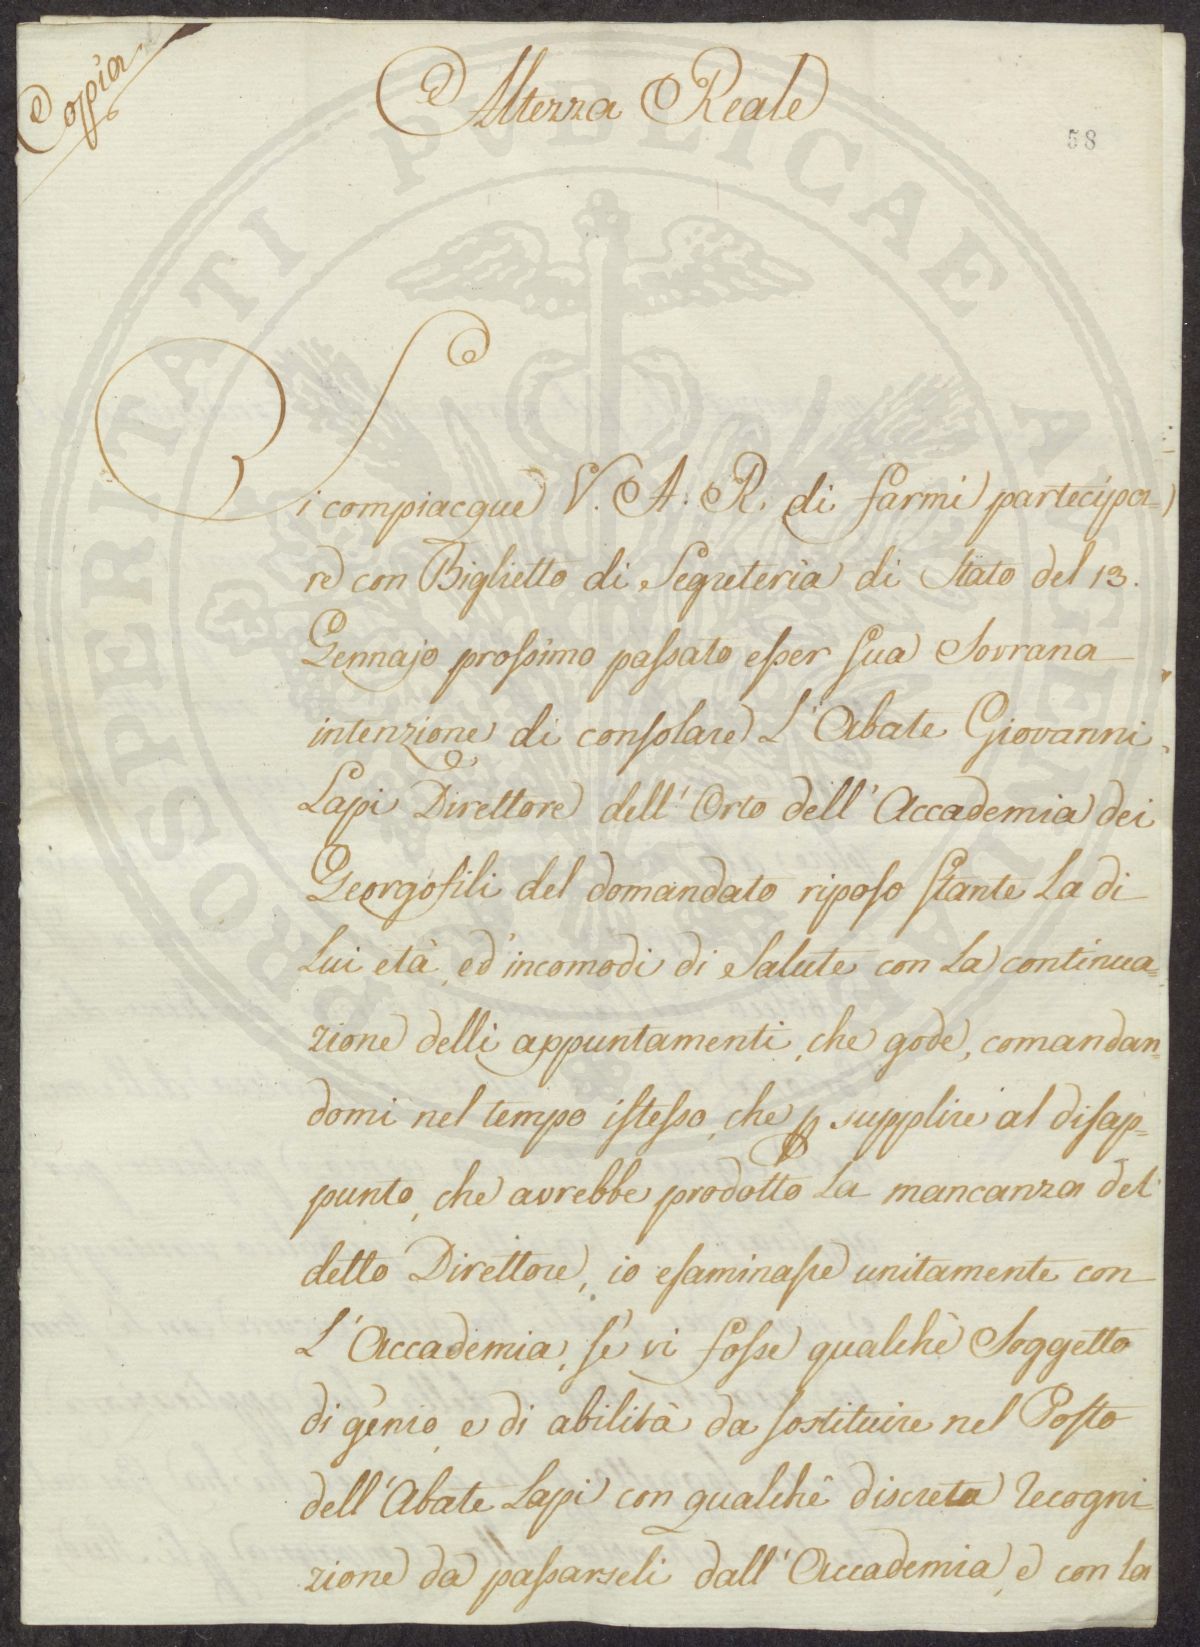 Copia
Altezza Reale
58
Si compiacque V. A. R. di farmi partecipa=
re con Biglietto di Segreteria di Stato del 13.
Gennajo prossimo passato esser sua Sovrana
intenzione di consolare L'Abate Giovanni
Lapi Direttore dell'Orto dell'Accademia dei
Georgofili del domandato riposo stante La di
Lui età, ed'incomodi di Salute con La continua=
zione delli appuntamenti, che gode, comandan=
domi nel tempo istesso, che p supplire al disap=
punto, che avrebbe prodotto La mancanza del
detto Direttore, io esaminassi unitamente con
L'Accademia, se vi fosse qualche Soggetto
di genio, e di abilità da sostituire nel Posto
dell'Abate Lapi con qualche discreta recogni=
zione da passarseli dall'Accademia, e con la
PROSPERITATI PVBLICAE AVGENDAE